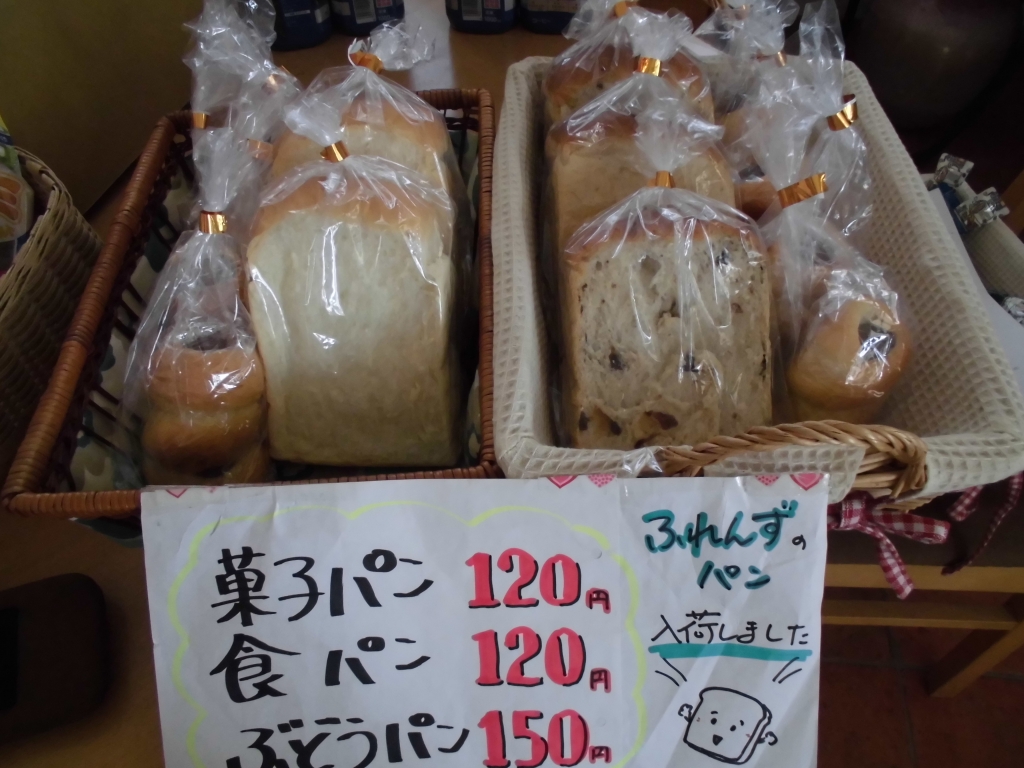 菓子パン 120円
食パン 120円
ぶどうパン 150円
ふれんずの
パン
入荷しました